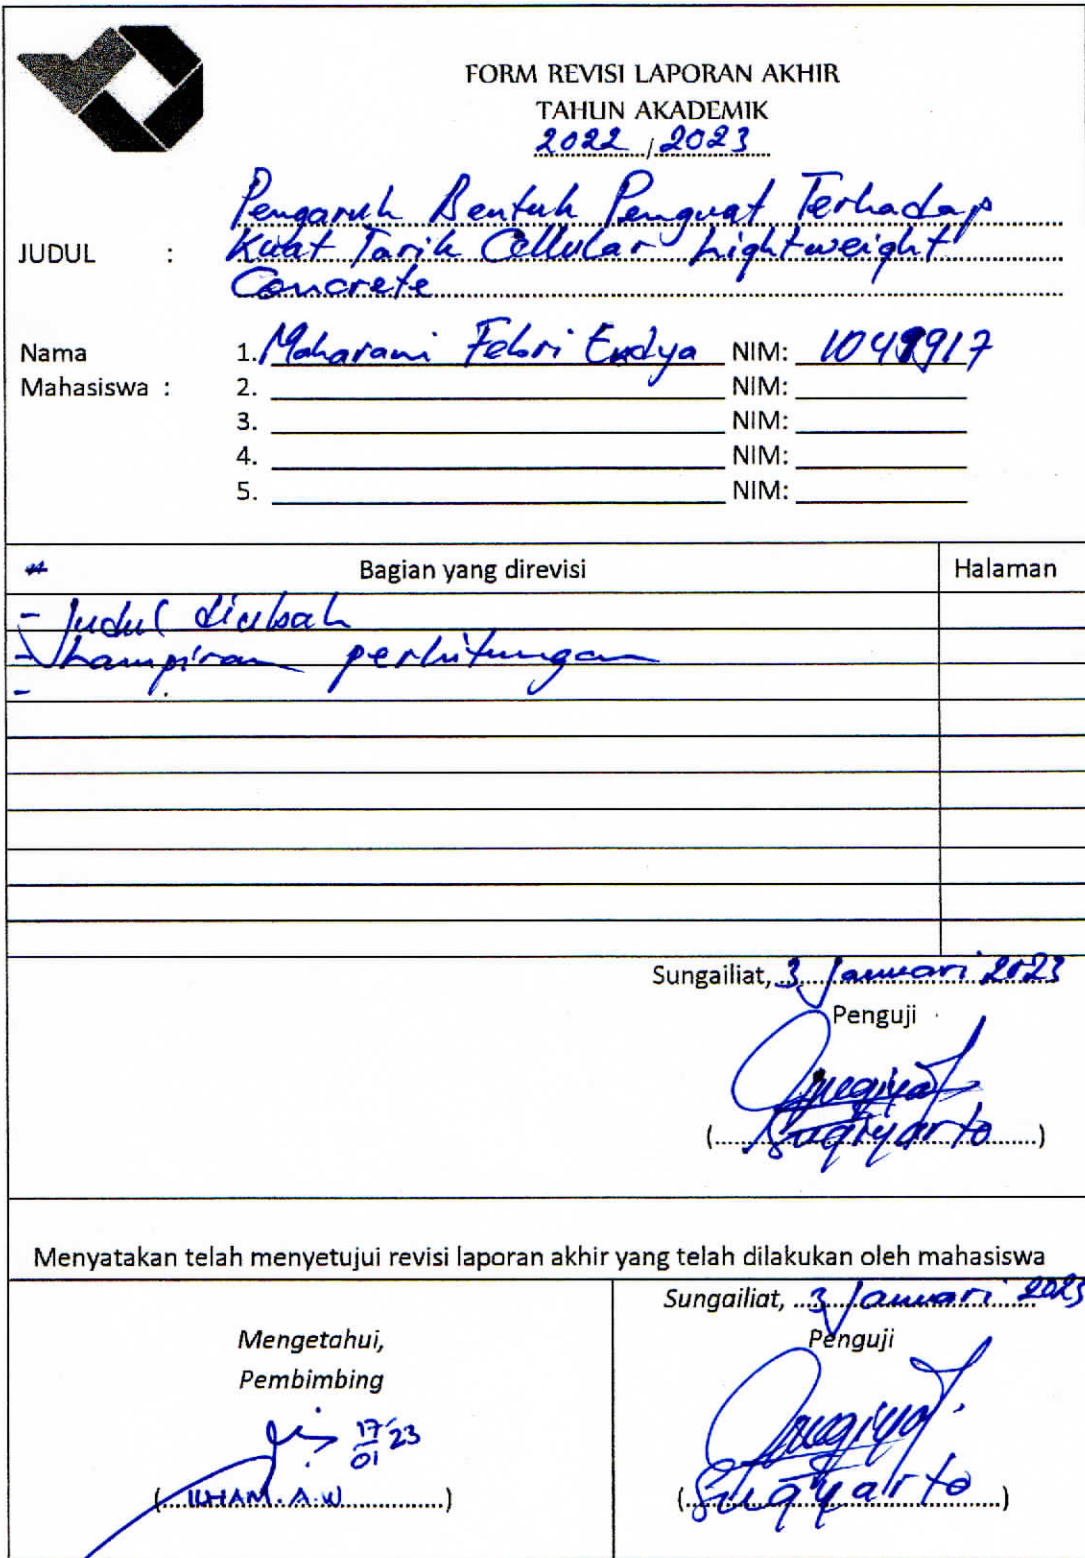 FORM REVISI LAPORAN AKHIR
TAHUN AKADEMIK
2022 / 2023
Pengaruh Bentuk Penguat Terhadap
JUDUL : Kuat Tarik Cellular Lightweight
Concrete
Nama 1. Maharani Febri Endya NIM:
Mahasiswa : 2. NIM:
3. NIM:
4. NIM:
5. NIM:
Bagian yang direvisi Halaman
- Judul diubah
- Lampiran perhitungan
-
Sungailiat, 3 Januari 2023
Penguji
(Sugiyarto)
Menyatakan telah menyetujui revisi laporan akhir yang telah dilakukan oleh mahasiswa
Sungailiat, 3 Januari 2023
Mengetahui, Penguji
Pembimbing
17/01 23
(ILHAM. A.W) (Sugiyarto)